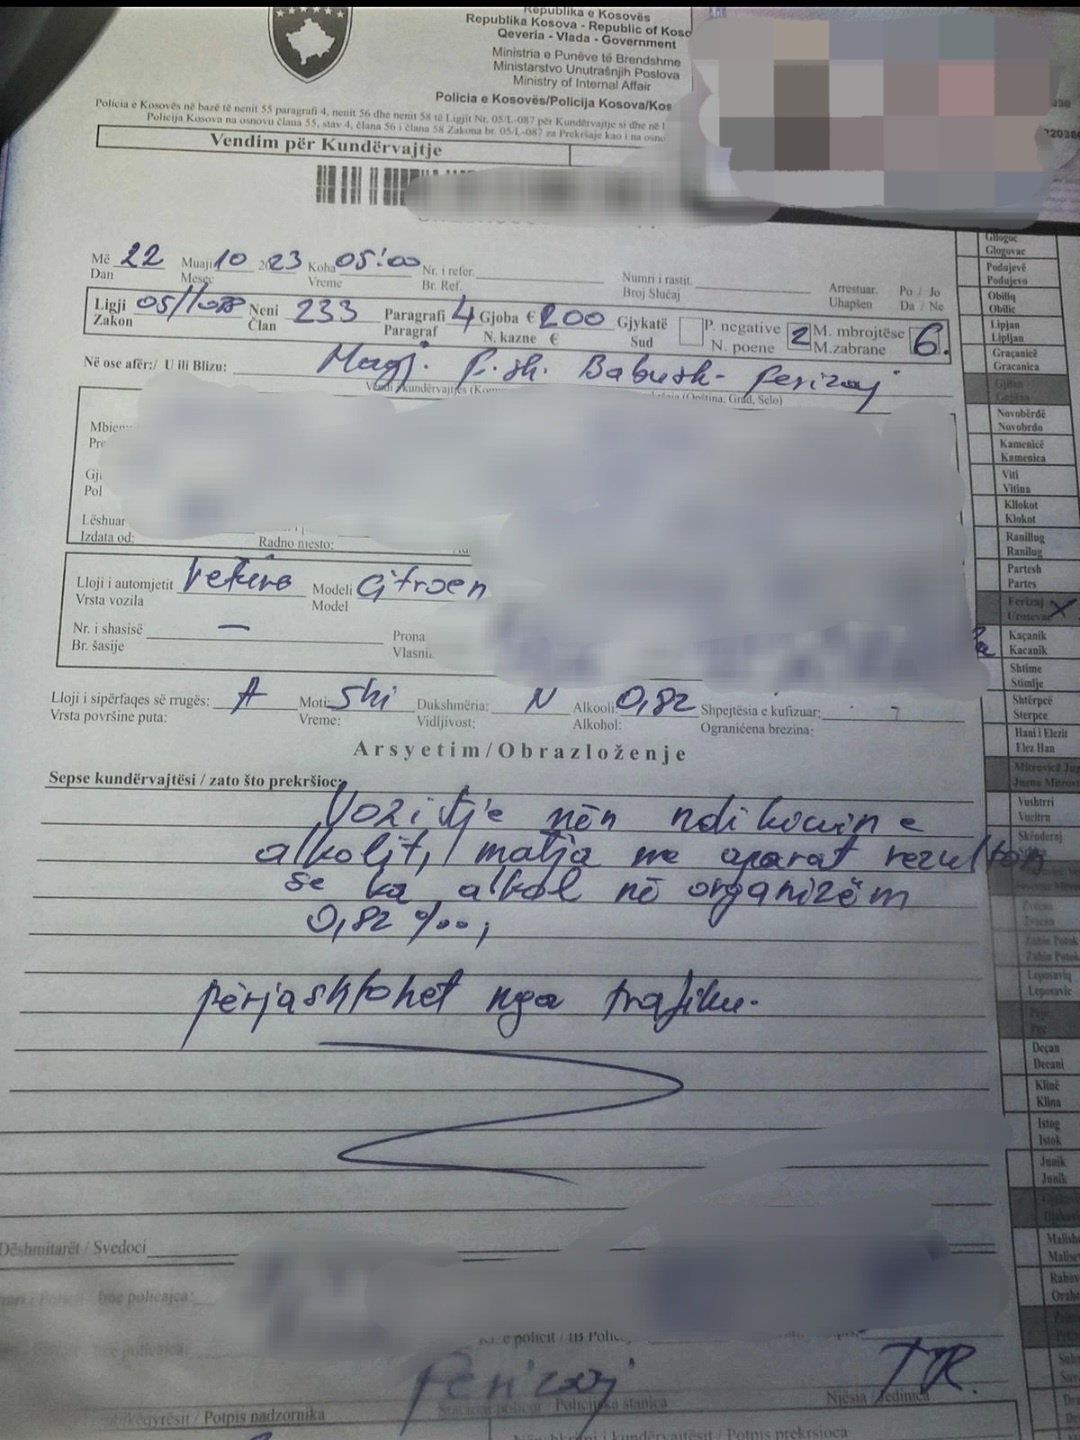 Republika e Kosovës
Republika Kosova - Republic of Koso
Qeveria - Vlada - Government
Ministria e Punëve të Brendshme
Ministarstvo Unutrašnjih Poslova
Ministry of Internal Affair
Policia e Kosovës/Policija Kosova/Kos
Policia e Kosovës në bazë të nenit 55 paragrafi 4, nenit 56 dhe nenit 58 të Ligjit Nr. 05/L-087 për Kundërvajtje si dhe në
Policija Kosova na osnovu člana 55, stav 4, člana 56 i člana 58 Zakona br. 05/L-087 za Prekršaje kao i na osno
Vendim për Kundërvajtje
Më 22 Muaji 10 2023 Koha 05:00 Nr. i refer. Numri i rastit. Arrestuar. Po / Jo
Dan Mesec Vreme Br. Ref. Broj Slučaj Uhapšen Da / Ne
Ligji Neni 233 Paragrafi 4 Gjoba € 200 Gjykatë P. negative 2 M. mbrojtëse 6.
Zakon Član Paragraf N. kazne € Sud N. poene M.zabrane
Në ose afër:/ U ili Blizu: Magj. F.sh. Babush- Ferizaj
(Opština, Grad, Selo)
Mbiem
Pre
Gji
Pol
Lëshuar
Izdata od: Radno mesto:
Lloji i automjetit Veturë Modeli Citroen
Vrsta vozila Model
Nr. i shasisë — Prona
Br. šasije Vlasni
Lloji i sipërfaqes së rrugës: A Moti: Shi Dukshmëria: N Alkooli 0,82 Shpejtësia e kufizuar:
Vrsta površine puta: Vreme: Vidljivost: Alkohol: Ograničena brezina:
Arsyetim/Obrazloženje
Sepse kundërvajtësi / zato što prekršioc:
Vozitje nën ndikimin e
alkolit, matja me aparat rezulton
se ka alkol në organizëm
0,82 ‰;
përjashtohet nga trafiku.
Dëshmitarët / Svedoci
Ferizaj TR.
Njësia / Jedinica
Potpis nadzornika
i kundërvajtësit / Potpis prekršioca
Gllogoc
Glogovac
Podujevë
Podujevo
Obiliq
Obilic
Lipjan
Lipljan
Graçanicë
Gracanica
Novobërdë
Novobrdo
Kamenicë
Kamenica
Viti
Vitina
Kllokot
Klokot
Ranillug
Ranilug
Partesh
Partes
Ferizaj X
Urosevac
Kaçanik
Kacanik
Shtime
Stimlje
Shtërpcë
Sterpce
Hani i Elezit
Elez Han
Vushtrri
Vucitrn
Skënderaj
Zubin Potok
Zubin Potok
Leposaviq
Leposavic
Deçan
Decani
Klinë
Klina
Istog
Istok
Junik
Junik